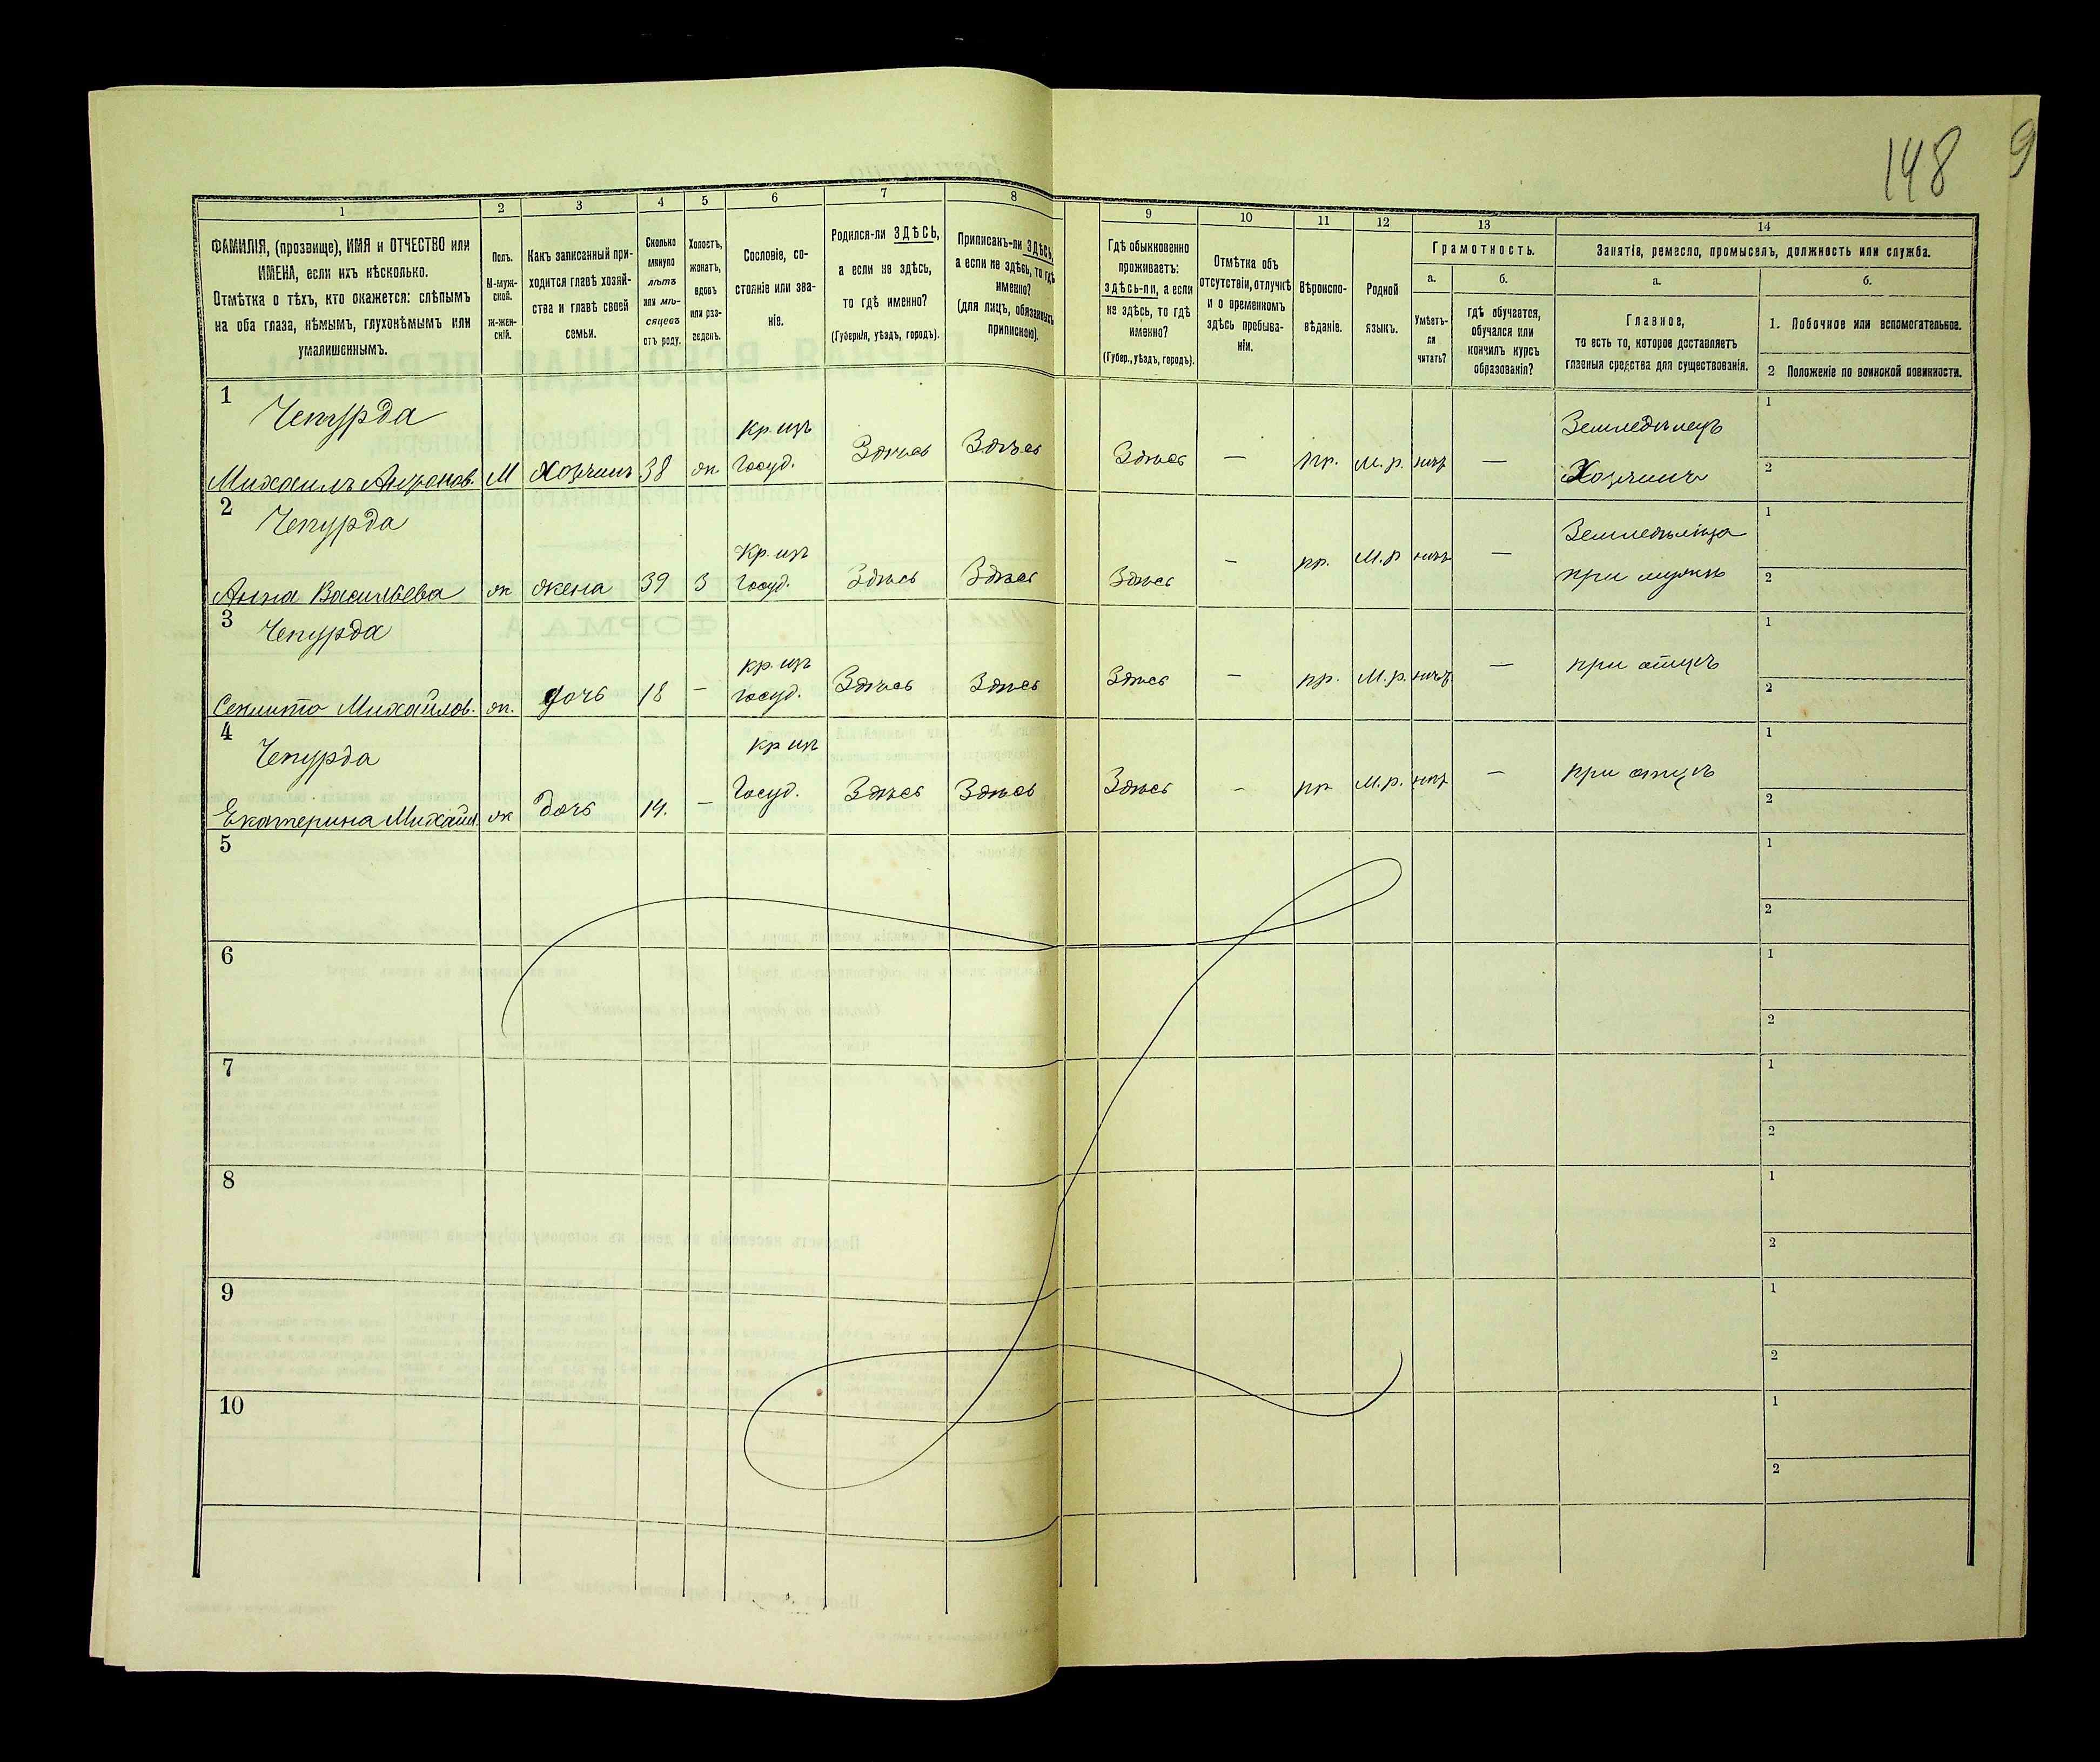 148
9
1
2
3
4
5
6
7
8
9
10
11
12
13
14
ФАМИЛІЯ, (прозвище), ИМЯ и ОТЧЕСТВО или
ИМЕНА, если ихъ нѣсколько.
Отмѣтка о тѣхъ, кто окажется: слѣпымъ
на оба глаза, нѣмымъ, глухонѣмымъ или
умалишеннымъ.
Полъ.
М-муж-
ской.
ж-жен-
скій.
Какъ записанный при-
ходится главѣ хозяй-
ства и главѣ своей
семьи.
Сколько
минуло
лѣтъ
или мѣ-
сяцевъ
отъ роду.
Холостъ,
женатъ,
вдовъ
или раз-
веденъ.
Сословіе, со-
стояніе или зва-
ніе.
Родился-ли ЗДѢСЬ,
а если не здѣсь,
то гдѣ именно?
(Губернія, уѣздъ, городъ).
Приписанъ-ли ЗДѢСЬ,
а если не здѣсь, то гдѣ
именно?
(для лицъ, обязанныхъ
припискою).
Гдѣ обыкновенно
проживаетъ:
ЗДѢСЬ-ЛИ, а если
не здѣсь, то гдѣ
именно?
(Губер., уѣздъ, городъ).
Отмѣтка объ
отсутствіи, отлучкѣ
и о временномъ
здѣсь пребыва-
ніи.
Вѣроиспо-
вѣданіе.
Родной
языкъ.
Грамотность.
а.
Умѣетъ-
ли
читать?
б.
гдѣ обучается,
обучался или
кончилъ курсъ
образованія?
Занятіе, ремесло, промыселъ, должность или служба.
а.
Главное,
то есть то, которое доставляетъ
главныя средства для существованія.
б.
1. Побочное или вспомогательное.
2 Положеніе по воинской повинности.
1
Чепурда
кр. изъ
Земледѣлецъ
1
Михаилъ М Хозяинъ 38 ж. Госуд. Здѣсь Здѣсь Здѣсь — пр. М. р. нѣтъ — Хозяинъ
2
2
Чепурда
Кр. изъ
Земледѣлица
1
Анна Васильева ж жена 39 З Госуд. Здѣсь Здѣсь Здѣсь — пр. М. р нѣтъ — при мужѣ
2
3
Чепурда
кр. изъ
1
Михайлов. ж. дочь 18 — госуд. Здѣсь Здѣсь Здѣсь — пр. М. р. нѣтъ — при отцѣ
2
4
Чепурда
кр изъ
1
Екатерина Михайл. ж дочь 14. — Госуд. Здѣсь Здѣсь Здѣсь — пр М. р. нѣтъ — при отцѣ
2
5
1
2
6
1
2
7
1
2
8
1
2
9
1
2
10
1
2